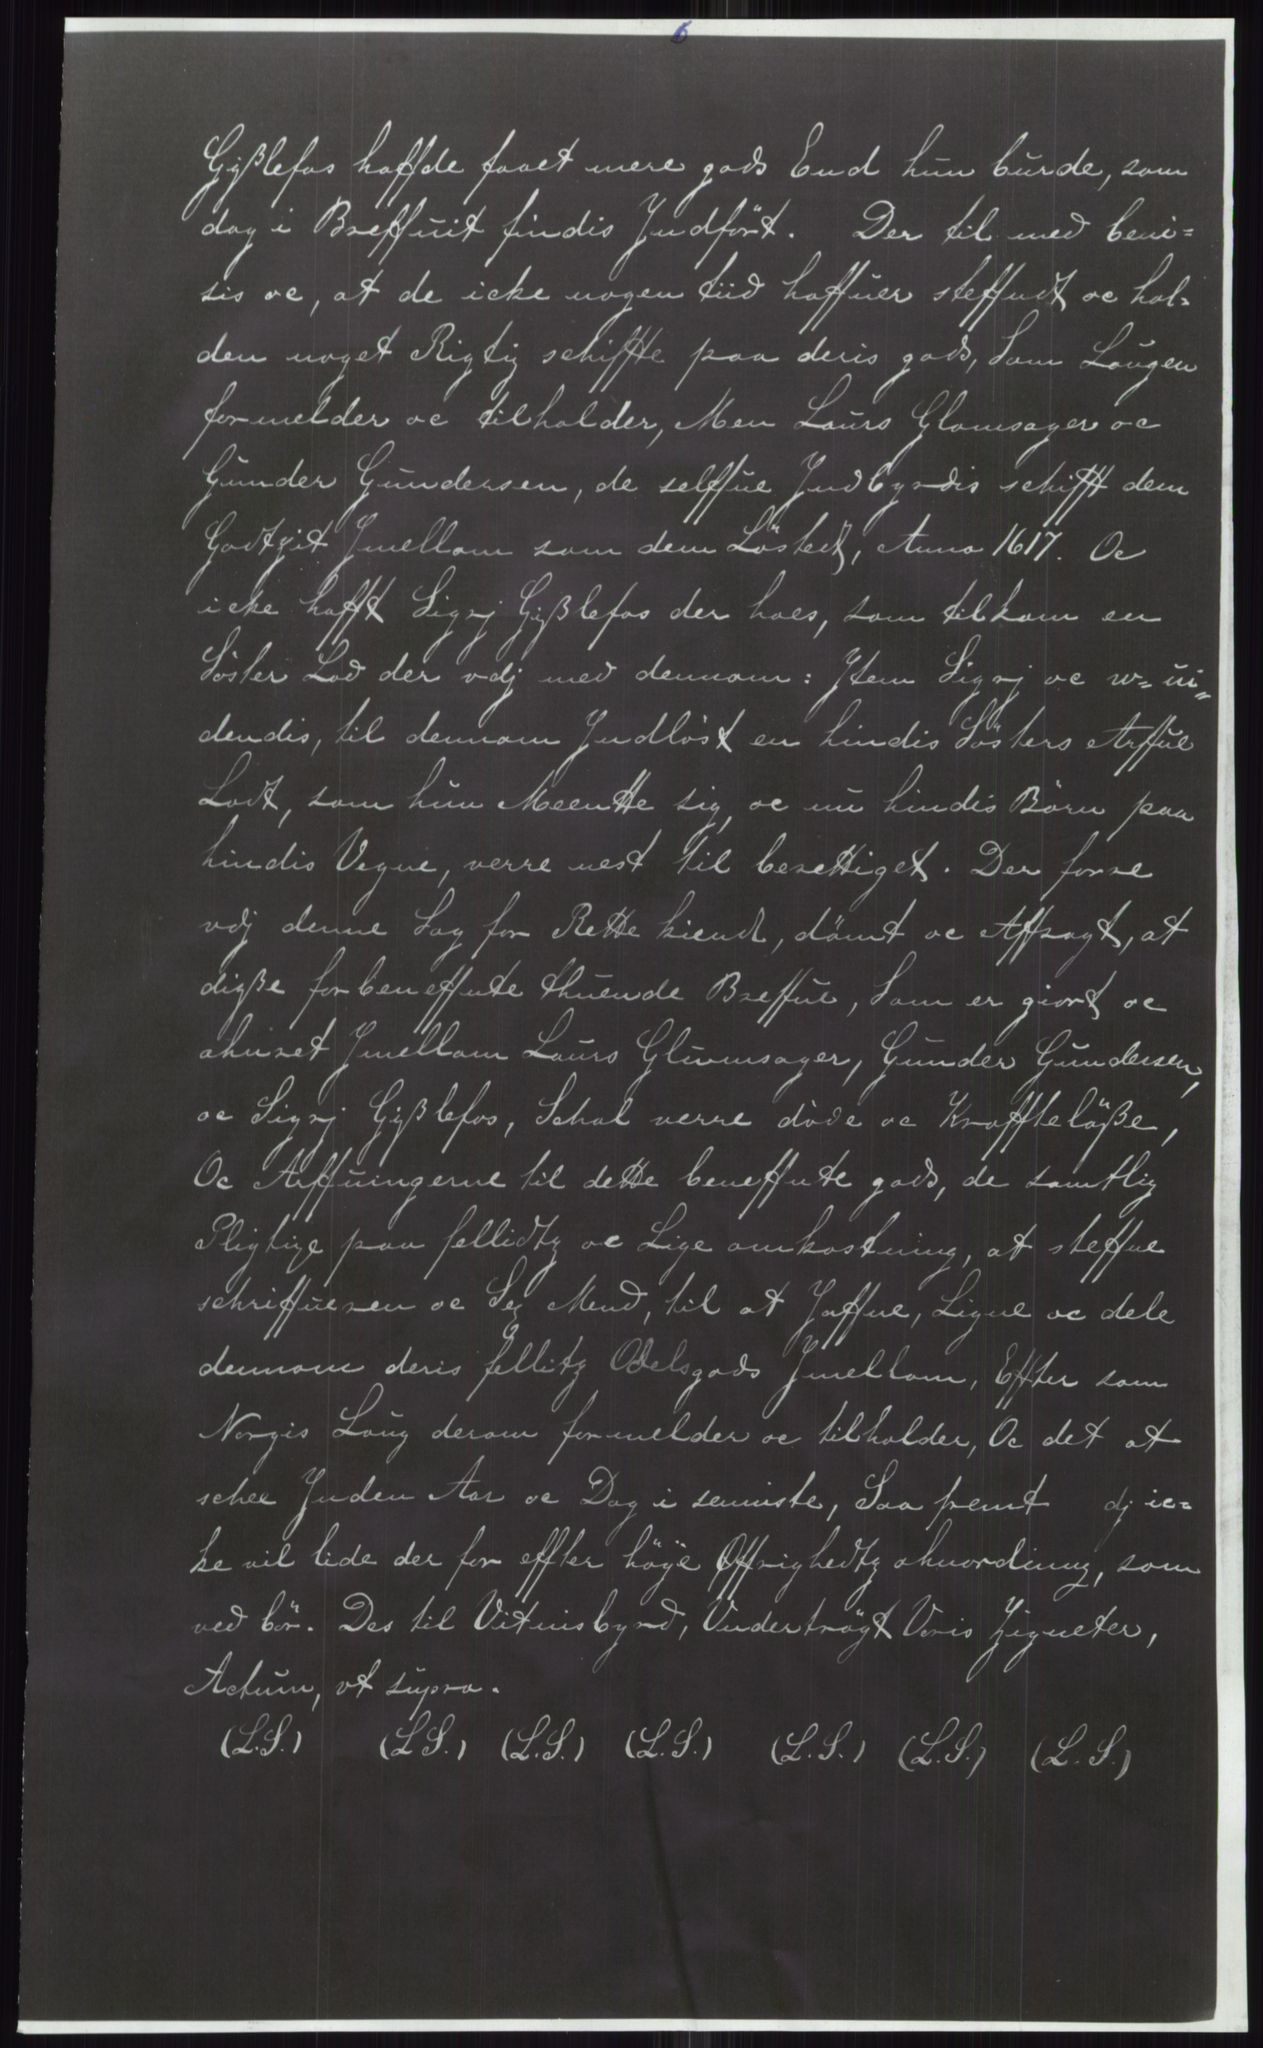 6
Gÿßlefos haffde faaet mere gods End hun burde, som
dog i Breffuit findis Jndfört. Der til med bevi=
sis oc, at de icke nogen tiid haffuer steffndt oc hol=
den noget Rigtig schiffte paa deris gods, Som Laugen
formelder oc tilholder, Men Laurs Glomsager oc
Gunder Gundersen, de selffue Jndbyrdis schifft dem
Godtzit Jmellom som dem Löstedt, Anno 1617. Oc
icke hafft Sigrj Gißlefos der hoes, som tilkom en
Söster Lod der vdj med dennom: Jtem Sigrj oc w=ui=
dendis, til dennom Jndlöst en hindis Sösters Arffue
Lodt, som hun Meentte sig, oc nu hindis Börn paa
hindis Vegne, verre nest til berettiget. Der forre
vdj denne Sag for Rette kiendt, dömt oc Affsagt, at
diße forbeneffnte thuende Breffue, Som er giort oc
ahuret Jmellom Laurs Glumsager, Gunder Gundersen,
oc Sigrj Gißlefos, Schal verre döde oc Krafftelöße,
Oc Arffuingerne til dette beneffnte gods, de samtlig
Pligtige paa fellidtz oc Lige omkostning, at steffne
schriffueren oc Sex Mend, til at Jaffne, Ligne oc dele
dennom deris fellitz Odelsgods Jmellom, Effter som
Norgis Laug derom formelder oc tilholder, Oc det at
schee Jnden Aar oc Dag i seniiste, Saa fremt dj ic=
ke vil lide der for effter höÿe Öffrighedtz ahnordining, som
ved bör. Des til Vitnisbyrd, Vndertrögt Voris Zigneter,
Actum, vt supra.
(L.S.) (L.S.) (L.S.) (L.S.) (L.S.) (L.S.) (L.S.)